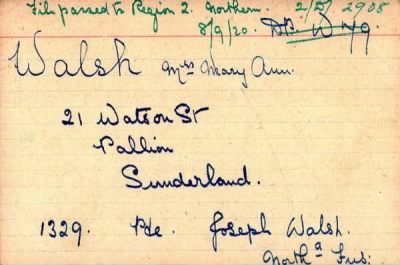 File passed to Region 2. Northern. 2/D/ 2908
8/9/20. DP. W 79.
Walsh Mrs Mary Ann.
21 Watson St
Pallion
Sunderland.
1329. Pte. Joseph Walsh.
North'd Fus: